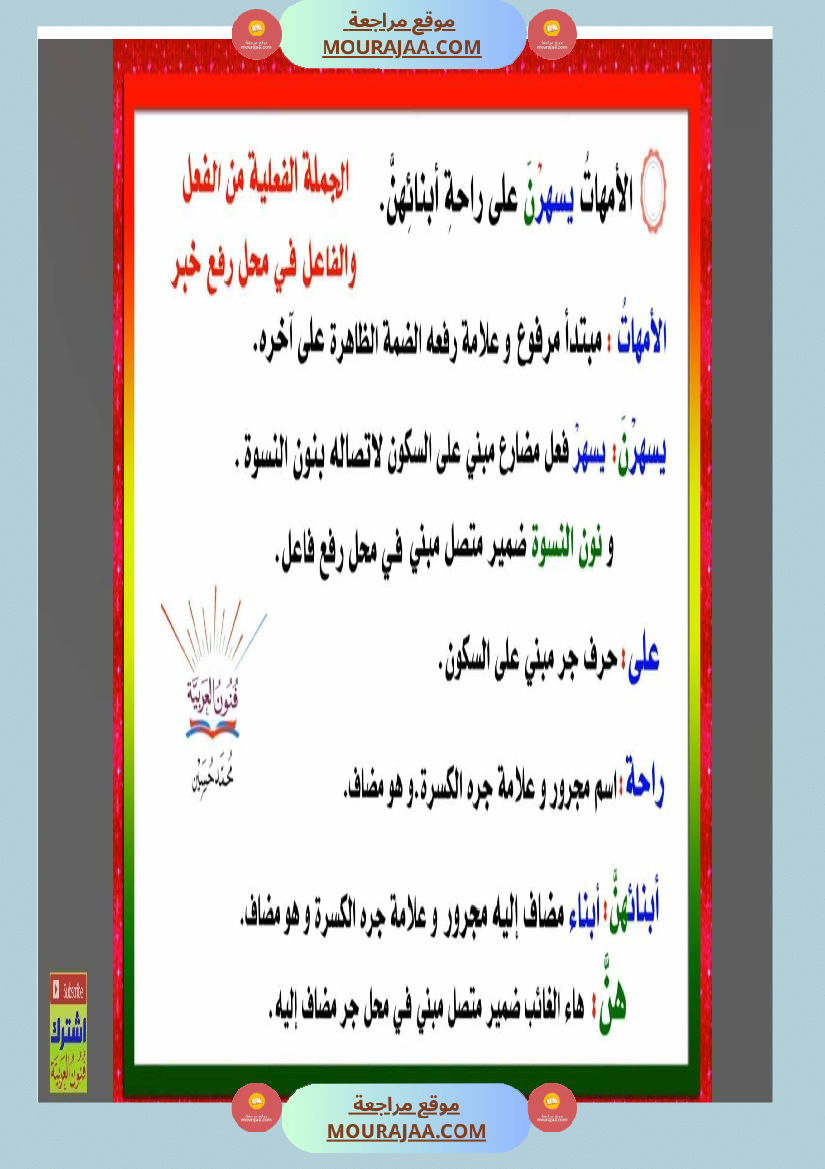 موقع مراجعة
MOURAJAA.COM
الأمهاتُ يسهرْنَ على راحةِ أبنائِهنَّ.
الجملة الفعلية من الفعل
والفاعل في محل رفع خبر
الأمهاتُ : مبتدأ مرفوع و علامة رفعه الضمة الظاهرة على آخره.
يسهرْنَ : يسهرْ فعل مضارع مبني على السكون لاتصاله بنون النسوة .
و نون النسوة ضمير متصل مبني في محل رفع فاعل.
على : حرف جر مبني على السكون.
فُنُونُ العَرَبِيَّة
مُحَمَّد حُسَيْن
راحة : اسم مجرور و علامة جره الكسرة.و هو مضاف.
أبنائهنَّ : أبناء مضاف إليه مجرور و علامة جره الكسرة و هو مضاف.
هنَّ : هاء الغائب ضمير متصل مبني في محل جر مضاف إليه.
Subscribe
اشترك
فُنُونُ العَرَبِيَّة
موقع مراجعة
MOURAJAA.COM